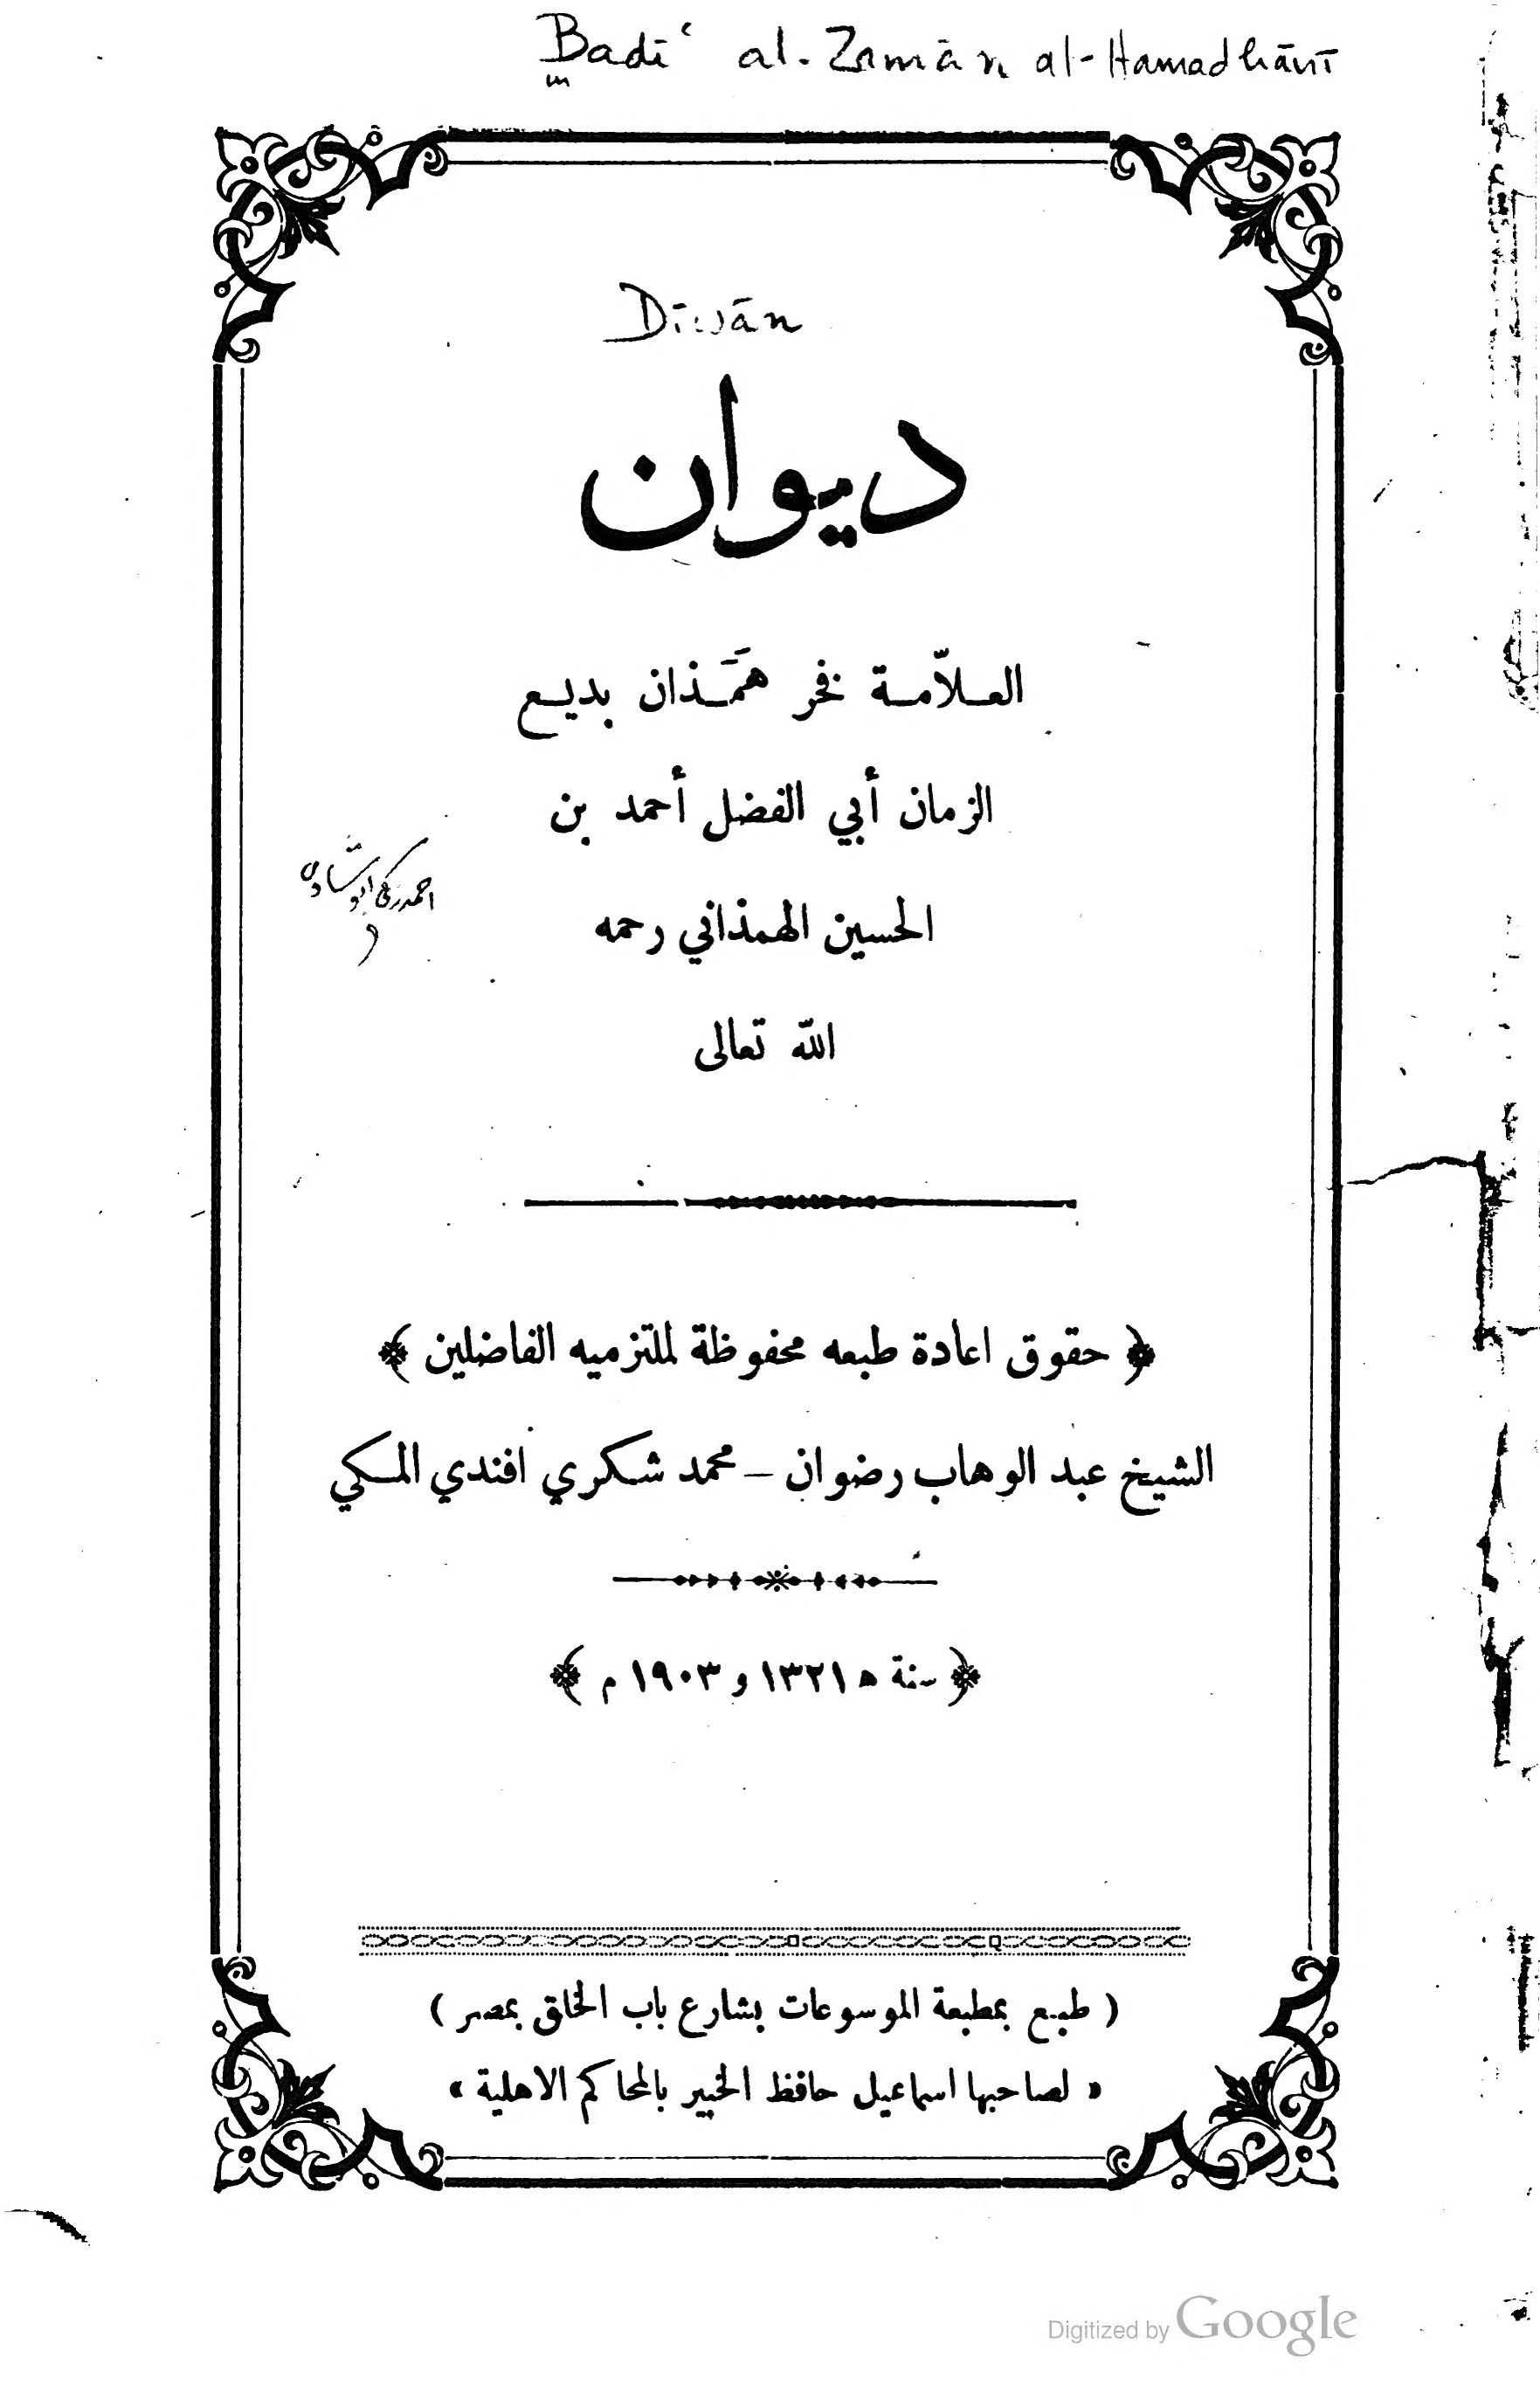 Badīʿ al-Zamān al-Hamadhānī
Dīwān
ديوان
العلاّمة فخر هَمَذان بديع
الزمان أبي الفضل أحمد بن
الحسين الهمذاني رحمه
الله تعالى
احمد زكي ابو شادي
﴿ حقوق اعادة طبعه محفوظة لملتزميه الفاضلين ﴾
الشيخ عبد الوهاب رضوان — محمد شكري افندي المكي
﴿ سنة ه ١٣٢١ و ١٩٠٣ م ﴾
( طبع بمطبعة الموسوعات بشارع باب الخلق بمصر )
« لصاحبها اسماعيل حافظ الخبير بالمحاكم الاهلية »
Digitized by Google